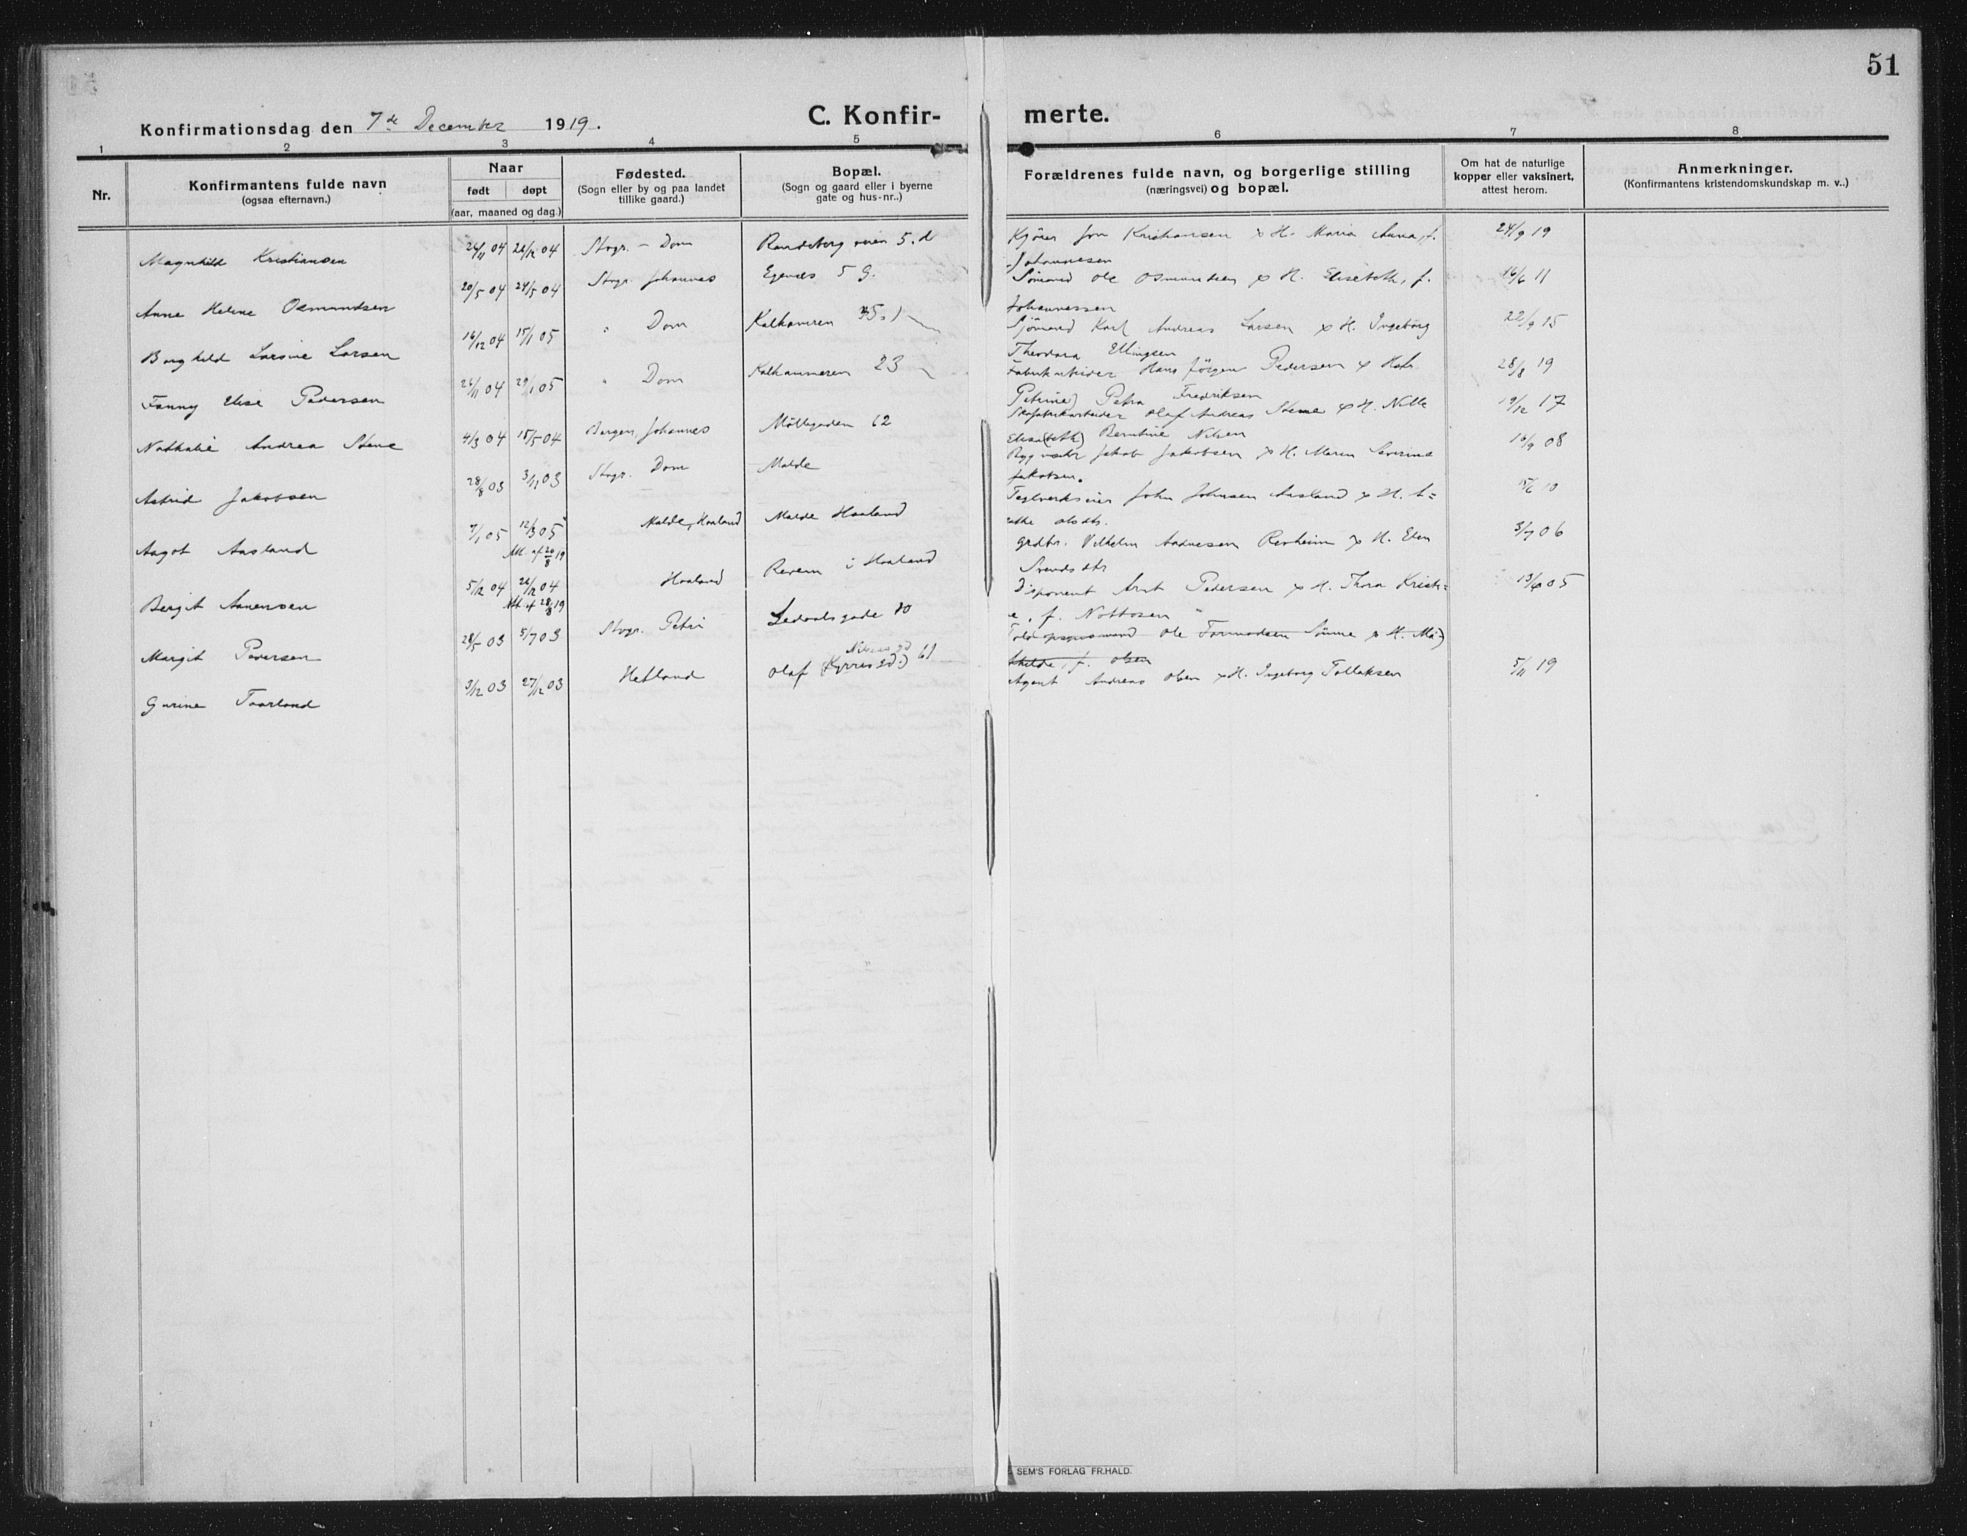 51
Konfirmationsdag den 7de December 1919. C. Konfir- merte.
1 2 3 4 5 6 7 8
Nr. Konfirmantens fulde navn (ogsaa efternavn.) Naar født døpt (aar, maaned og dag.) Fødested. (Sogn eller by og paa landet tillike gaard.) Bopæl. (Sogn og gaard eller i byerne gate og hus-nr..) Forældrenes fulde navn, og borgerlige stilling (næringsvei) og bopæl. Om hat de naturlige kopper eller vaksinert, attest herom. Anmerkninger. (Konfirmantens kristendomskundskap m. v..)
Magnhild Kristiansen 26/11 04 26/12 04 Stvgr. - Dom 5. d Kjører Kristiansen x H. Maria Anna, f. 24/9 19
Johannesen
Anne Helene Osmundsen 20/5 04 24/5 04 Stvgr. Johannes Egenes 5 g. Sømand Ole Osmundsen x H. Elisebeth, f. 16/6 11
Johannessen
Borghild Larsine Larsen 16/12 04 15/1 05 " Dom Kalhammeren Sjömand Karl Andreas Larsen x H. Ingeborg 22/9 15
Theodora Ellingsen
Fanny Elise Pedersen 26/11 04 29/1 05 " Dom Kalhammeren 23 Fabrikarbeider Hans Jörgen Pedersen x 28/8 19
Petrine) Petra Fredriksen
Nathalie Andrea Stene 4/3 04 15/5 04 Bergen, Johannes Møllegaden 62 Olaf Andreas Stene x H. Nille 19/12 17
Elisa(beth) Berntine Nilsen
Astrid Jakobsen 28/8 03 3/11 03 Stvgr. Dom Malde Jakob Jakobsen x H. Maren Severine 10/9 08
Jakobsen.
Aagot Aasland 7/1 05 12/3 05 Malde, Haaland Malde Haaland Teglverkseier John Johnsen Aasland x H. A= 10
Att. af 20/8 19
rethe Olsdtr.
Bergit Annensen 5/12 04 26/12 04 Haaland Revem i Haaland grdbr. Vilhelm Andresen Revheim x H. Elen 3/7 06
Att. af 28/8 19
Svendsdtr
Margit Pedersen 28/5 03 5/7 03 Stvgr. Petri Ledaalsgade 10 Disponent Arnt Pedersen x H. Thora Kristi= 13/6 05
e, f. Nottosen
Toldopsynsmand Ole Tormodsen Sömme x H. Ma=
thilde, f. Olsen
Gurine Taarland 3/12 03 27/12 03 Hetland Olaf (Kyrres gd.) 61 Agent Andreas Olsen x H. Ingeborg Tollaksen 5/11 19
SEM'S FORLAG FR.HALD.